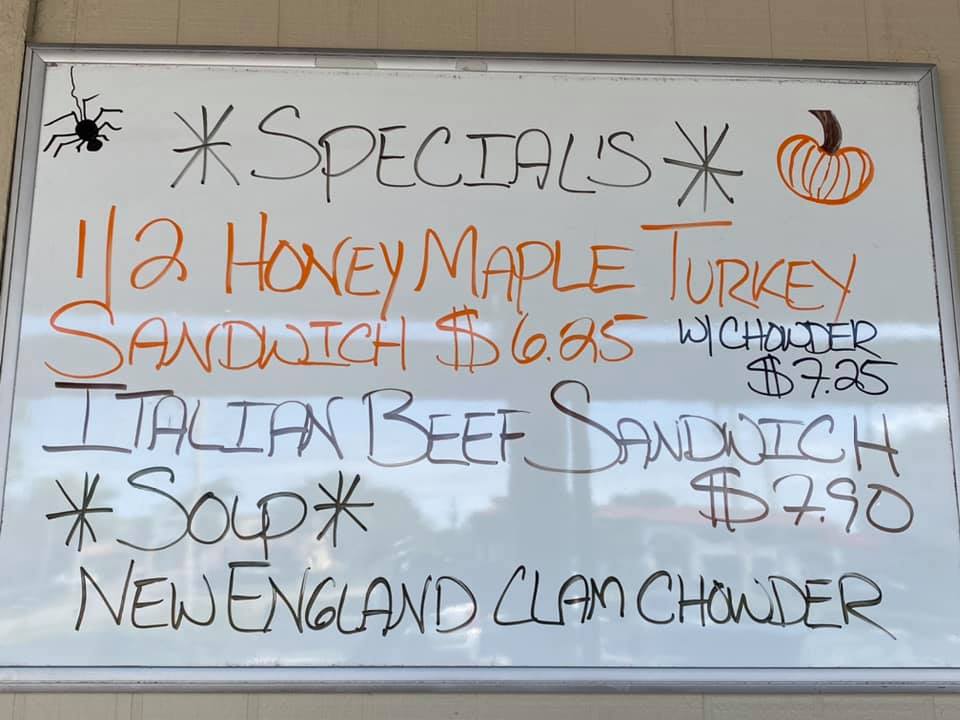 *SPECIAL'S*
1/2 HONEY MAPLE TURKEY
SANDWICH $6.25 W/CHOWDER
$7.25
ITALIAN BEEF SANDWICH
$7.90
*SOUP*
NEW ENGLAND CLAM CHOWDER